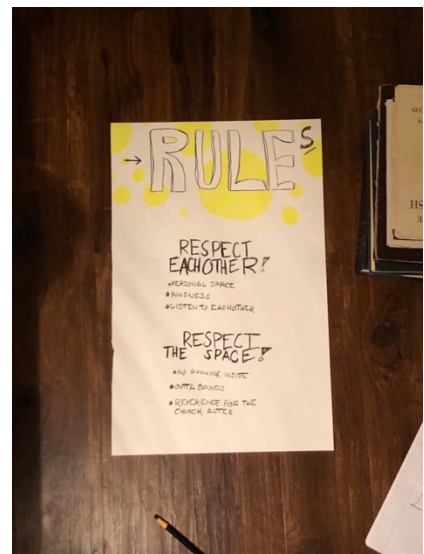 RULES
RESPECT
EACHOTHER!
• PERSONAL SPACE
• KINDNESS
• LISTEN TO EACHOTHER
RESPECT
THE SPACE!
• NO RUNNING INSIDE
• OUTTA BOUNDS
• REVERENCE FOR THE
CHURCH, ALTER